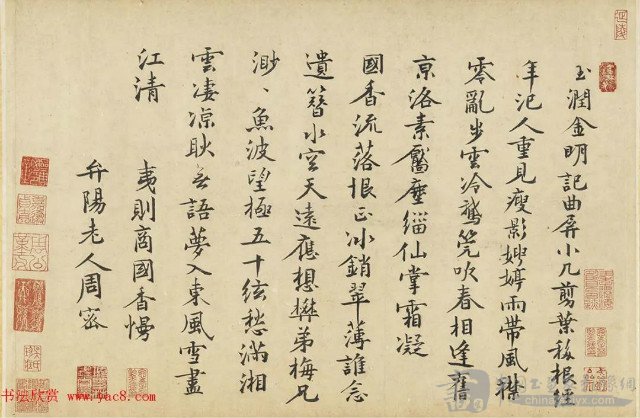 玉潤金明記曲屏小几剪葉移根經
年汜人重見瘦影娉婷雨帶風襟
零亂步雲冷鵞筦吹春相逢舊
京洛素靨塵緇仙掌霜凝
國香流落恨正冰銷翠薄誰念
遺簪水空天遠應想礬弟梅兄
渺、魚波望極五十絃愁滿湘
雲凄凉耿无語夢入東風雪盡
江清
夷則商國香慢
弁陽老人周密
书法欣赏 www.yac8.com